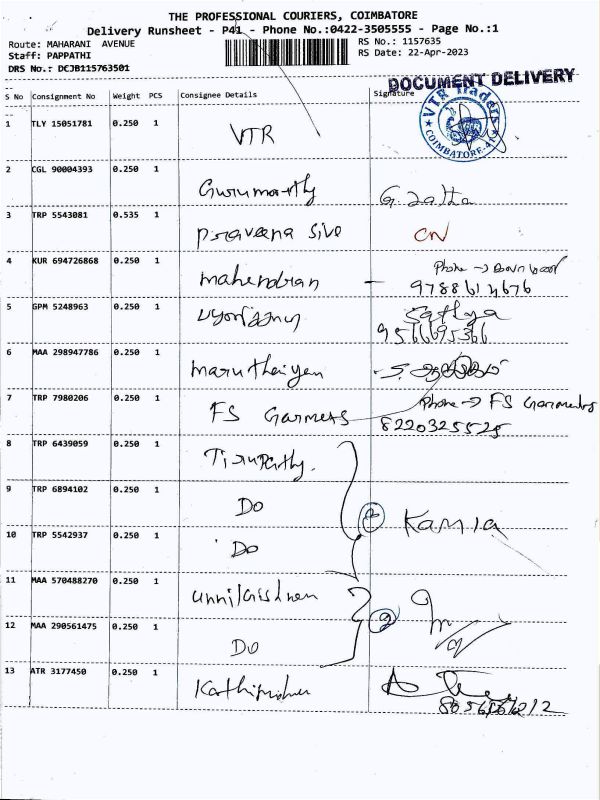 THE PROFESSIONAL COURIERS, COIMBATORE
Delivery Runsheet - P41 - Phone No.:0422-3505555 - Page No.:1
Route: MAHARANI AVENUE
Staff: PAPPATHI
DRS No.: DCJB115763501
RS No.: 1157635
RS Date: 22-Apr-2023
DOCUMENT DELIVERY
S No Consignment No Weight PCS Consignee Details Signature
VTR Traders
COIMBATORE-41
1 TLY 15051781 0.250 1 VTR
2 CGL 90004393 0.250 1 Gurumoorthy G. Latha
3 TRP 5543081 0.535 1 Praveena Siva CN
4 KUR 694726868 0.250 1 mahendiran - Phone →
9788614676
5 GPM 5248963 0.250 1 Sathya
9566695366
6 MAA 298947786 0.250 1
7 TRP 7980206 0.250 1 FS Garmets Phone → FS Garments
8220325525
8 TRP 6439059 0.250 1
9 TRP 6894102 0.250 1 DO
10 TRP 5542937 0.250 1 DO
11 MAA 570488270 0.250 1
12 MAA 290561475 0.250 1 DO 2
13 ATR 3177450 0.250 1